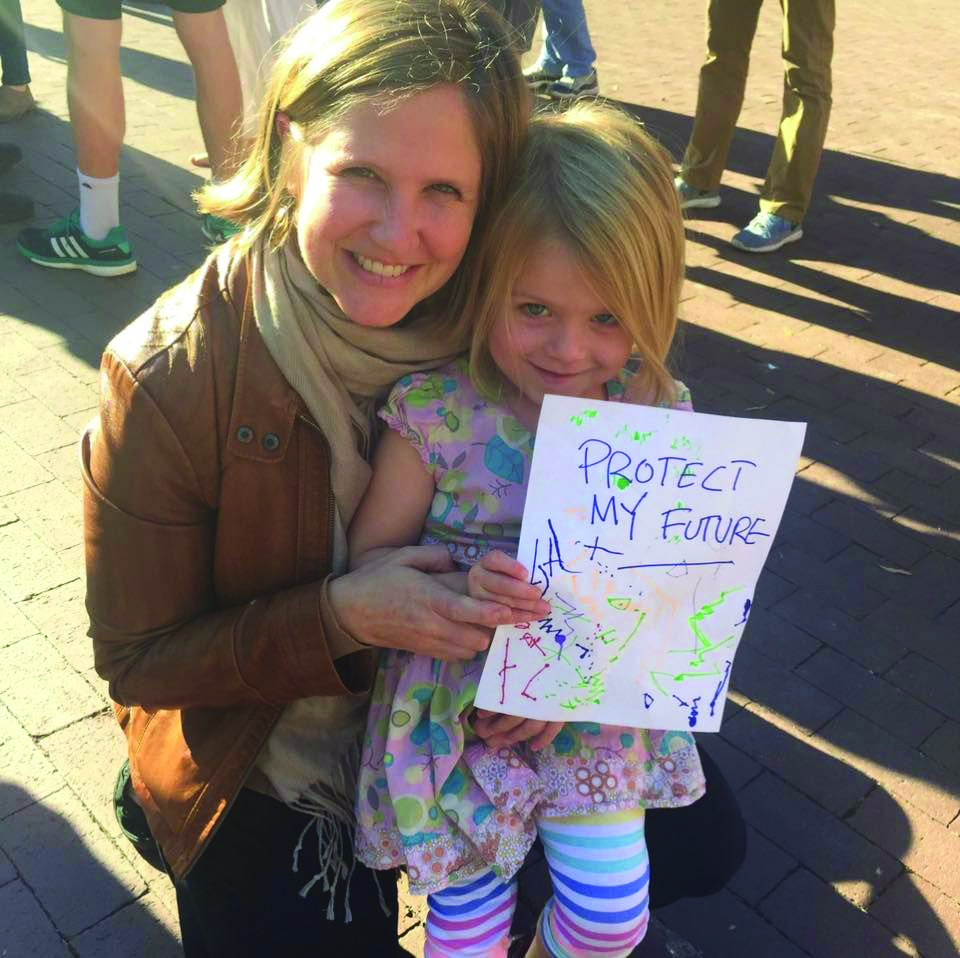 PROTECT
MY FUTURE